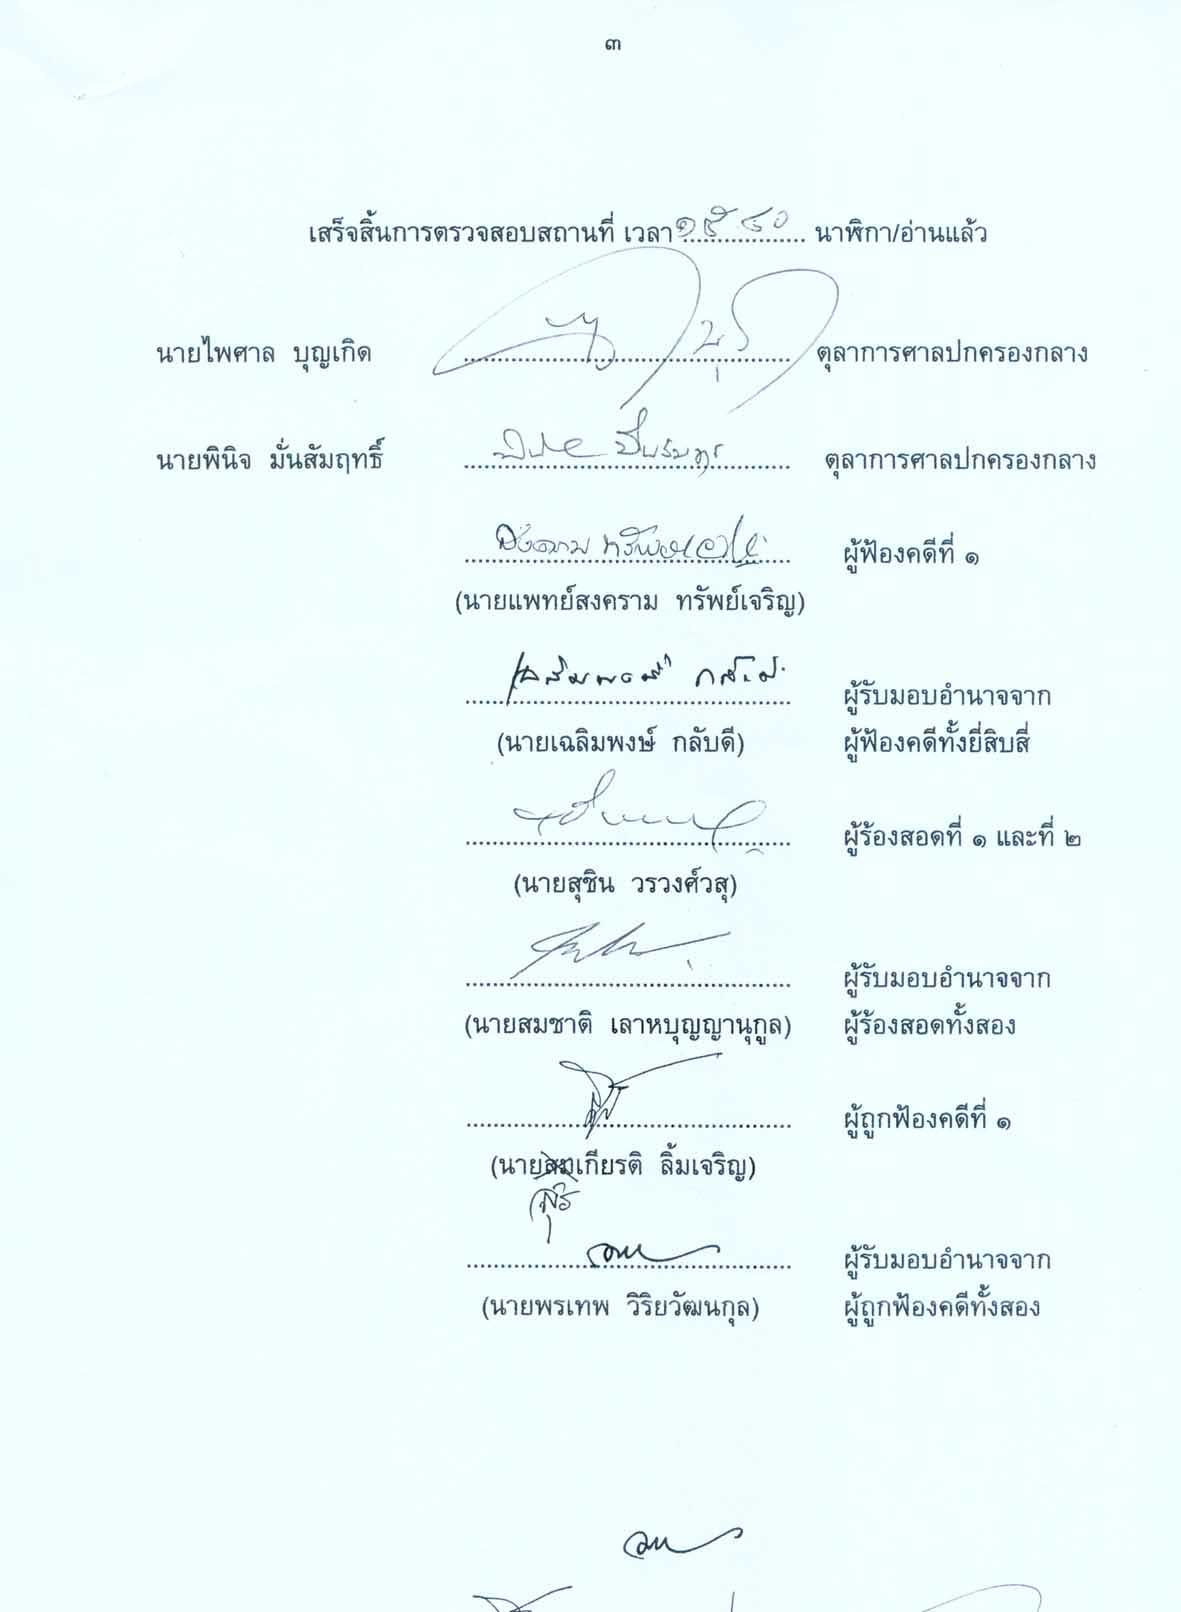 ๓
เสร็จสิ้นการตรวจสอบสถานที่ เวลา ๑๕ ๔๐ นาฬิกา/อ่านแล้ว
นายไพศาล บุญเกิด ........................................ ตุลาการศาลปกครองกลาง
นายพินิจ มั่นสัมฤทธิ์ ........................................ ตุลาการศาลปกครองกลาง
สงคราม ทรัพย์เจริญ ผู้ฟ้องคดีที่ ๑
(นายแพทย์สงคราม ทรัพย์เจริญ)
เฉลิมพงษ์ กลับดี ผู้รับมอบอำนาจจาก
(นายเฉลิมพงษ์ กลับดี) ผู้ฟ้องคดีทั้งยี่สิบสี่
........................................ ผู้ร้องสอดที่ ๑ และที่ ๒
(นายสุชิน วรวงศ์วสุ)
........................................ ผู้รับมอบอำนาจจาก
(นายสมชาติ เลาหบุญญานุกูล) ผู้ร้องสอดทั้งสอง
........................................ ผู้ถูกฟ้องคดีที่ ๑
(นายสมเกียรติ ลิ้มเจริญ)
........................................ ผู้รับมอบอำนาจจาก
(นายพรเทพ วิริยวัฒนกุล) ผู้ถูกฟ้องคดีทั้งสอง